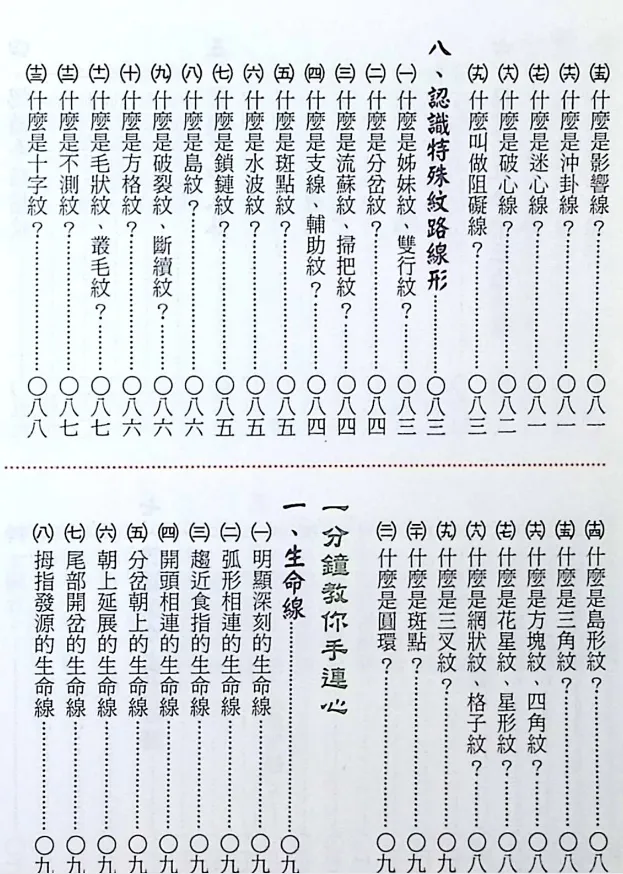 (十五)什麼是影響線?……〇八一
(十六)什麼是沖卦線?……〇八一
(十七)什麼是迷心線?……〇八一
(十八)什麼是破心線?……〇八二
(十九)什麼叫做阻礙線?……〇八三
八、認識特殊紋路線形……〇八三
(一)什麼是姊妹紋、雙行紋?……〇八三
(二)什麼是分岔紋?……〇八四
(三)什麼是流蘇紋、掃把紋?……〇八四
(四)什麼是支線、輔助紋?……〇八四
(五)什麼是斑點紋?……〇八五
(六)什麼是水波紋?……〇八五
(七)什麼是鎖鏈紋?……〇八五
(八)什麼是島紋?……〇八六
(九)什麼是破裂紋、斷續紋?……〇八六
(十)什麼是方格紋?……〇八六
(十一)什麼是毛狀紋、叢毛紋?……〇八七
(十二)什麼是不測紋?……〇八七
(十三)什麼是十字紋?……〇八八
(十四)什麼是島形紋?……〇八
(十五)什麼是三角紋?……〇八
(十六)什麼是方塊紋、四角紋?……〇八
(十七)什麼是花星紋、星形紋?……〇八
(十八)什麼是網狀紋、格子紋?……〇八
(十九)什麼是三叉紋?……〇九
(二十)什麼是斑點?……〇九
(二一)什麼是圓環?……〇九
一分鐘教你手連心
一、生命線……〇九
(一)明顯深刻的生命線……〇九
(二)弧形相連的生命線……〇九
(三)趨近食指的生命線……〇九
(四)開頭相連的生命線……〇九
(五)分岔朝上的生命線……〇九
(六)朝上延展的生命線……〇九
(七)尾部開岔的生命線……〇九
(八)拇指發源的生命線……〇九